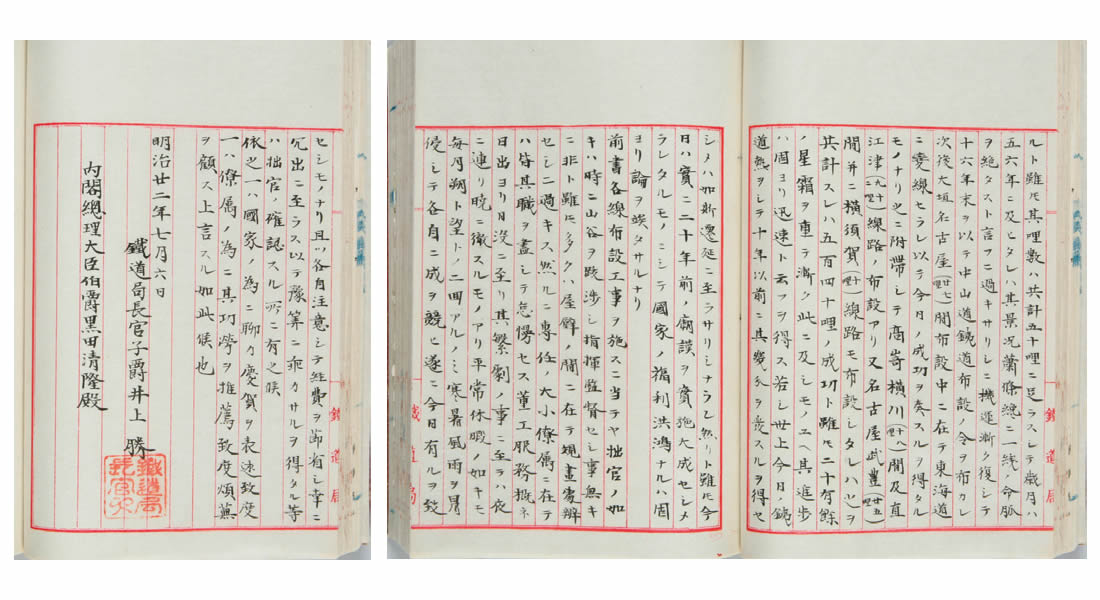 ルト雖モ其哩數ハ共計五十哩ニ足ラスシテ歲月ハ
五六年ニ及ヒタレハ其景況蕭條總ニ一綫ノ命脈
ヲ絶タスト言フニ過キサリシニ機運漸ク復シテ
十六年末ヲ以テ中山道鐵道布設ノ令ヲ布カレ
次後大垣名古屋間布設中ニ在テ東海道
ニ變線セラレ以テ今日ノ成功ヲ奏スルヲ得タル
モノナリ之ニ附帶シテ高崎橫川間及直
江津線路ノ布設アリ又名古屋武豊
間并ニ橫須賀線路モ布設シタレハ之ヲ
共計スレハ五百四十哩ノ成功ト雖モ二十有餘
ノ星霜ヲ重テ漸ク此ニ及シモノユヘ其進步
ハ固ヨリ迅速ト云フヲ得ス若シ世上今日ノ鐵
道熱ヲシテ十年以前ニ其幾分ヲ發スルヲ得セ
シメハ如斯遷延ニ至ラサリシナラン然リト雖モ今
日ハ實ニ二十年前ノ廟謨ヲ實施大成セシメ
ラレタルモノニシテ國家ノ福利洪鴻ナルハ固
ヨリ論ヲ竢タサルナリ
前書各線布設工事ヲ施スニ當テヤ拙官ノ如
キハ時ニ山谷ヲ跋涉シ指揮監督セシ事無キ
ニ非ト雖モ多クハ屋壁ノ間ニ在テ規畫處辨
セシニ過キス然ルニ專任ノ大小僚屬ニ在テ
ハ皆其職ヲ盡シテ怠慢セス董工服務概ネ
日出ヨリ日没ニ至リ其繁劇ノ事ニ至ラハ夜
ニ連リ曉ニ徹スルモノアリ平常休暇ノ如キモ
每月朔ト望トノ二回アルノミ寒暑風雨ヲ冒
侵シテ各自ニ成ヲ競ヒ遂ニ今日有ルヲ致
セシモノナリ且ツ各自注意シテ経費ヲ節省シ幸ニ
冗出ニ至ラス以テ豫筭ニ乖カサルヲ得タル等
ハ拙官ノ確認スル所ニ有之候
依之一ハ國家ノ為ニ聊カ慶賀ヲ表速致度
一ハ僚屬ノ為ニ其功勞ヲ推薦致度煩蕪
ヲ顧ス上言スル如此候也
明治廿二年七月六日
鐵道局長官子爵井上勝
內閣總理大臣伯爵黒田清隆殿
鐵道局長官印
鐵道局
鐵道局